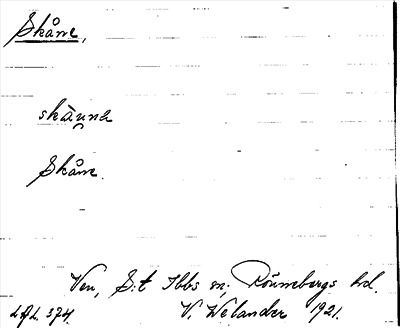 Skåne,
skåuna
Skåne.
Ven, S:t Ibbs sn; Rönnebergs hd.
V. Welander 1921.
374.